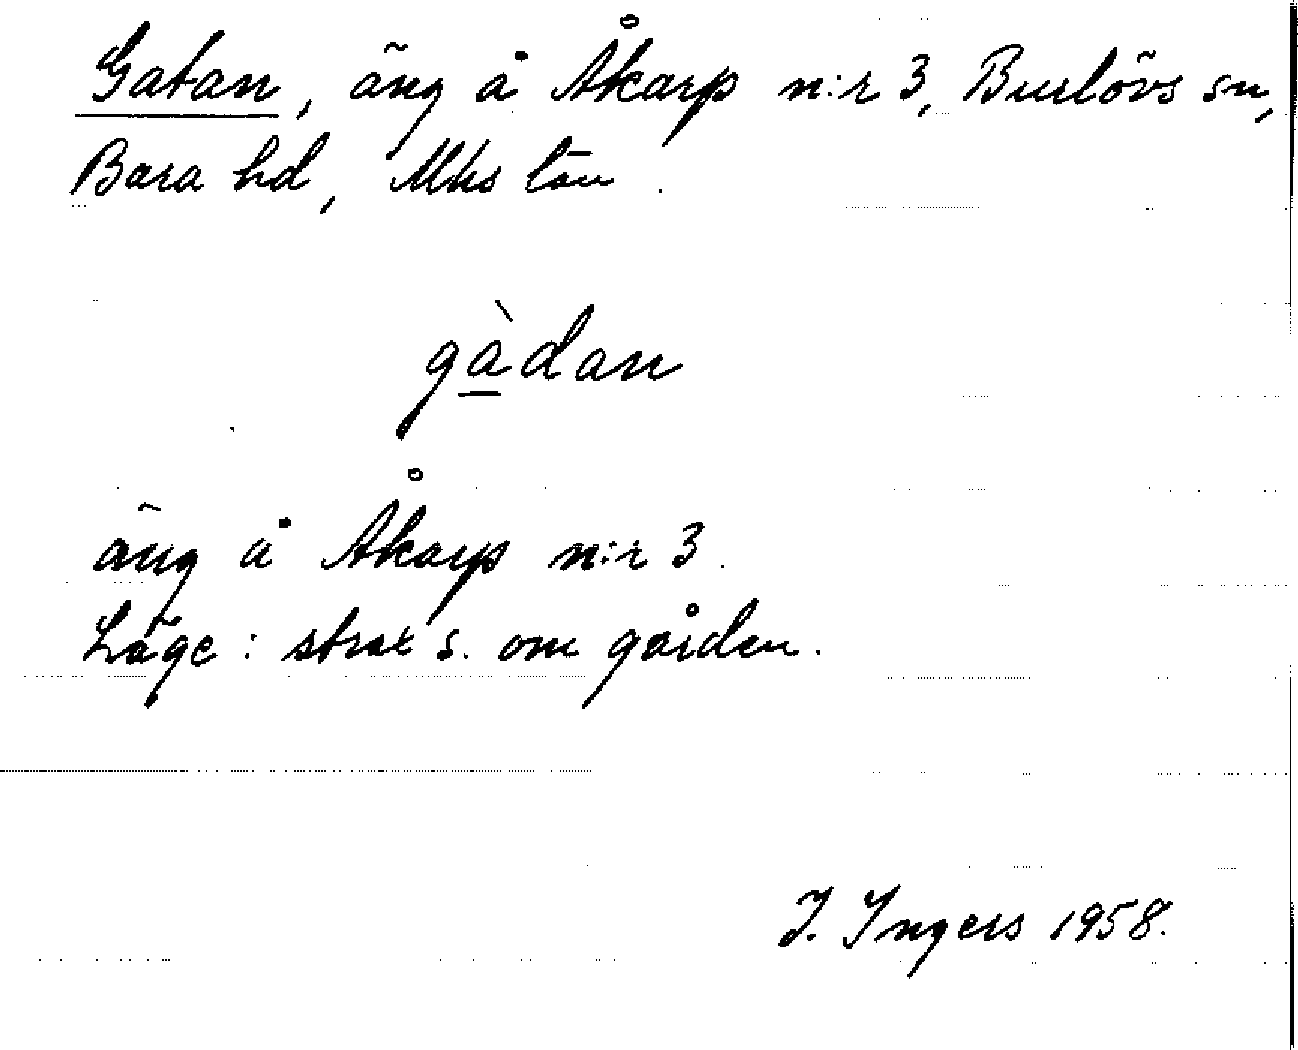 Gatan, äng å Åkarp n:r 3, Burlövs sn,
Bara hd, Mhs län.
gàdan
äng å Åkarp n:r 3.
Läge: strax s. om gården.
I. Ingers 1958.